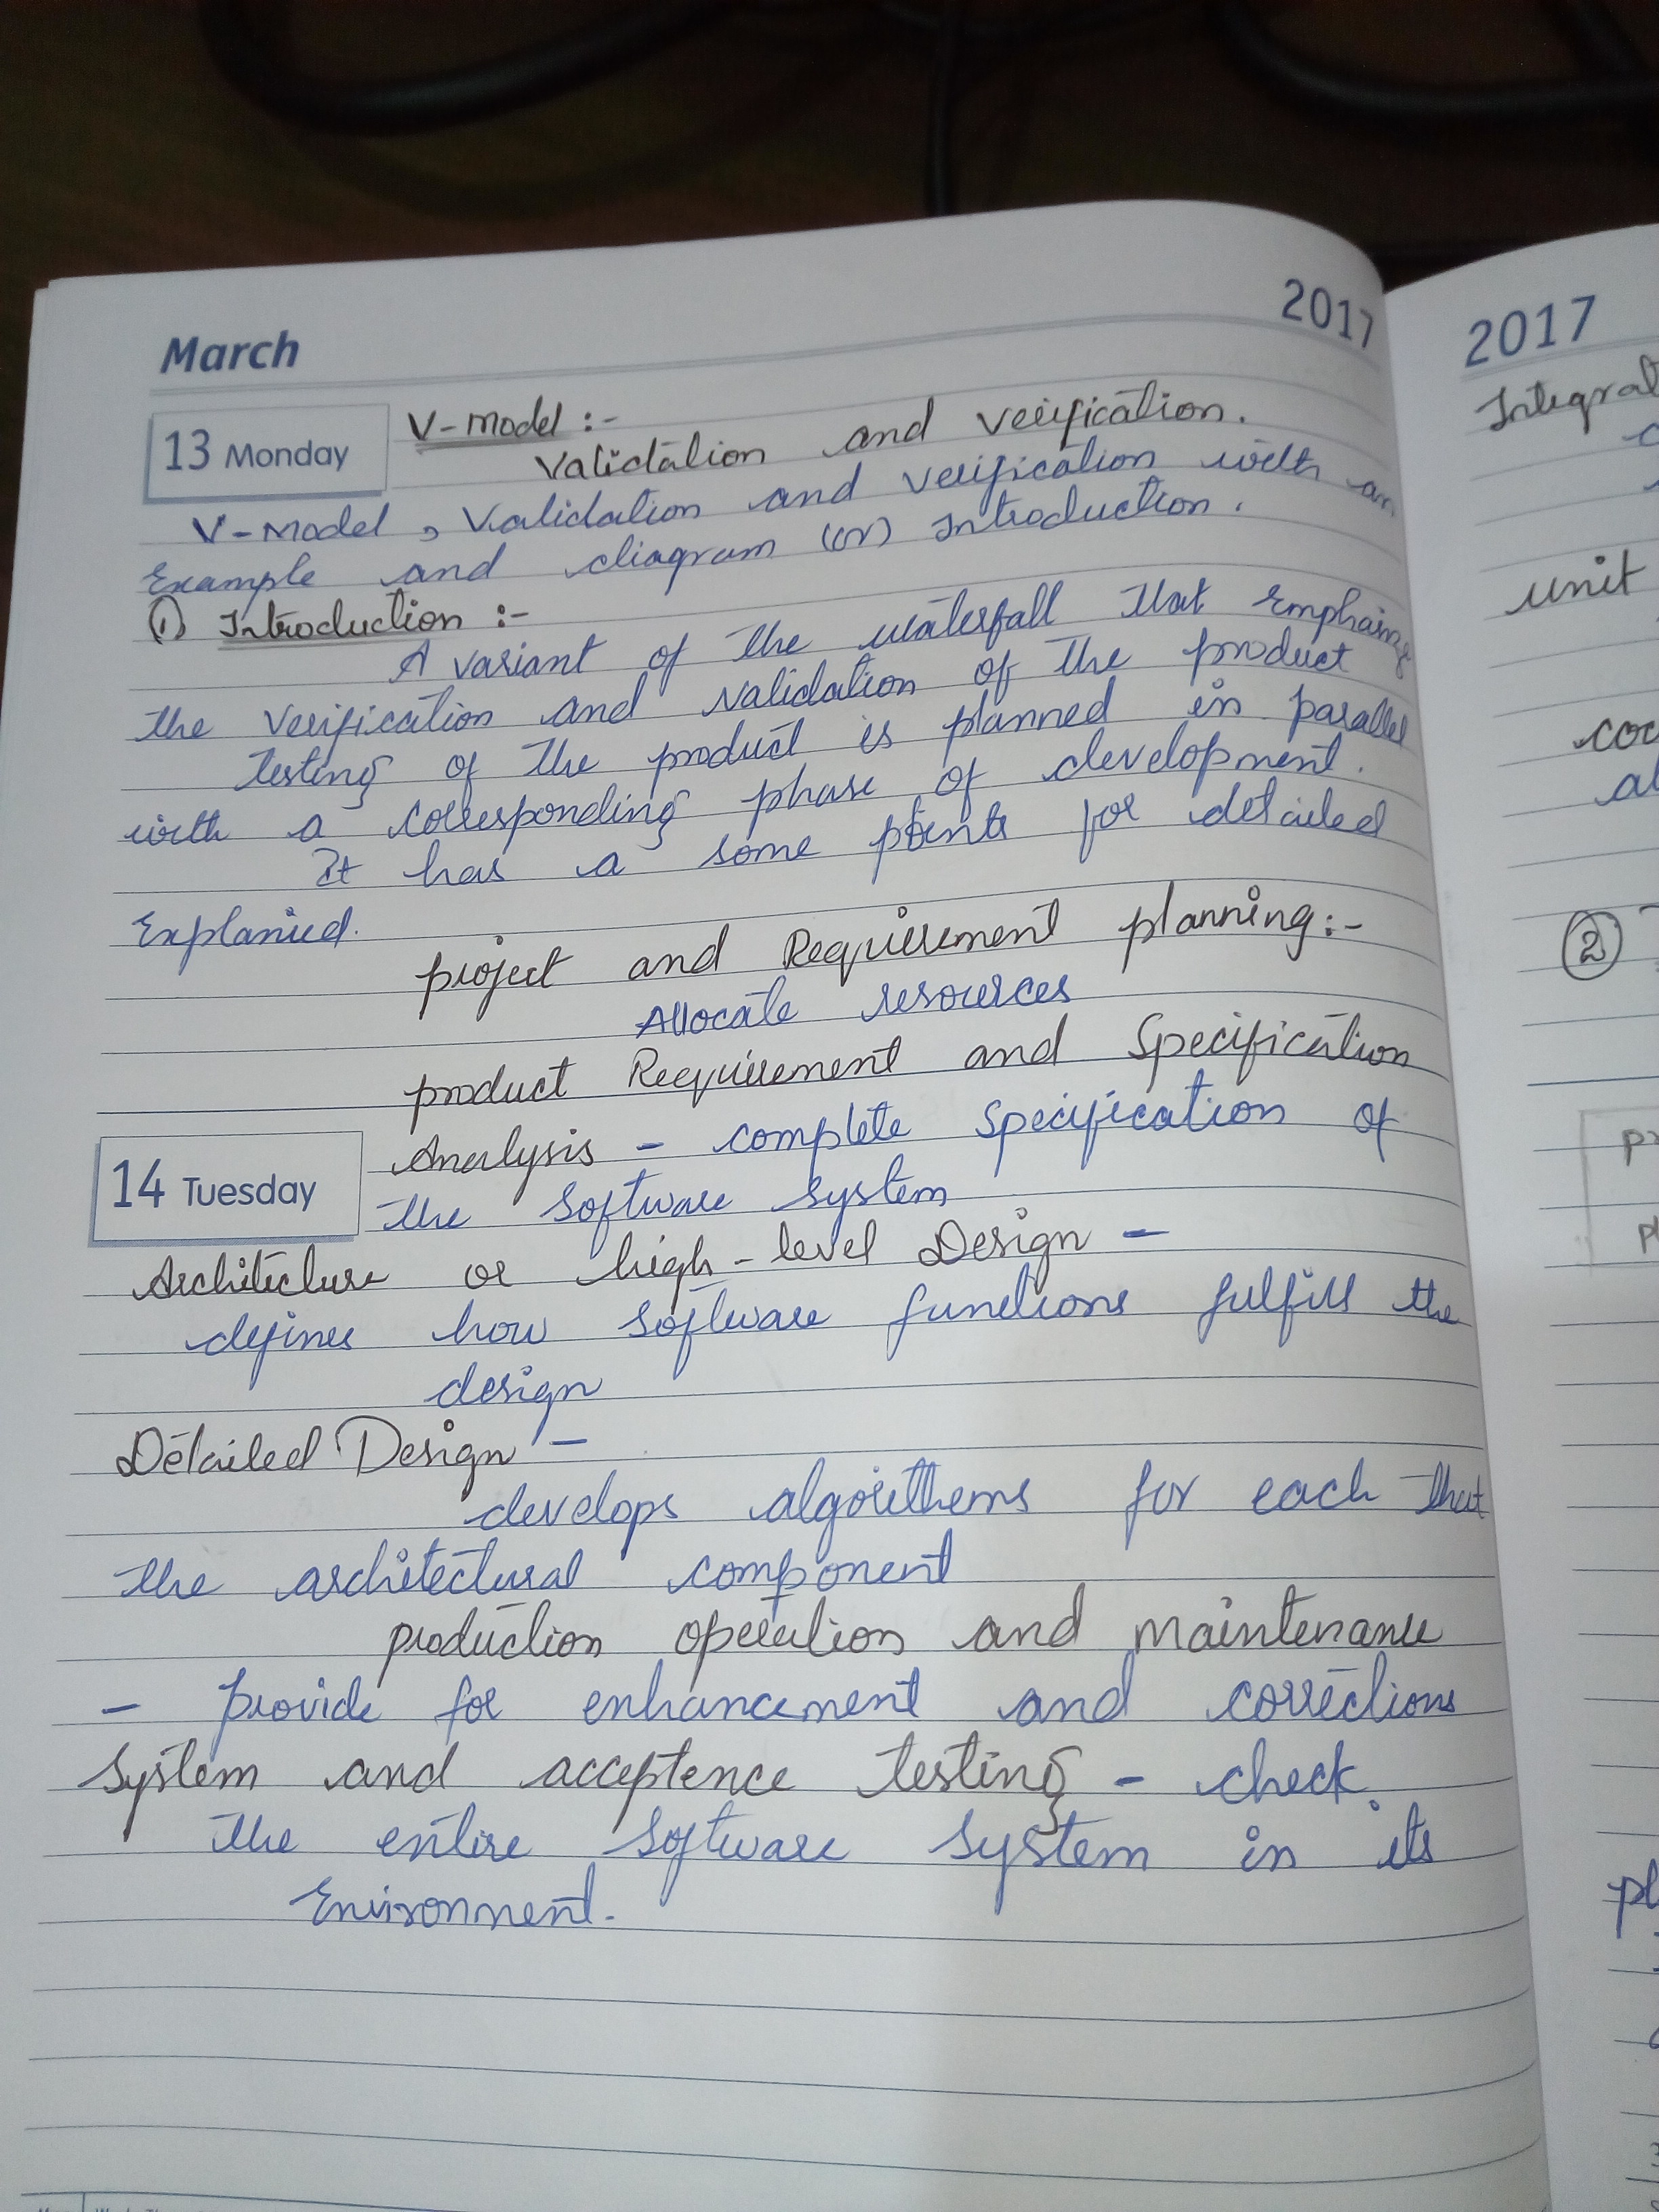 March 2017
13 Monday
V-Model :-
Validation and Verification.
V-Model, Validation and verification with an
Example and diagram (or) Introduction.
① Introduction :-
A variant of the waterfall that Emphaing
the verification and validation of the product
testing of the product is planned in parallel
with a corresponding phase of development.
It has a some points for detailed
Explanied.
project and Requirement planning:-
Allocate resources
product Requirement and Specification
14 Tuesday
Analysis - complete specification of
the software system
Architecture or high-level Design -
defines how software functions fulfill the
design
Detailed Design -
develops algorithems for each that
the architectural component
production operation and maintenance
- provide for enhancement and corrections
System and acceptence testing - check
the entire software system in its
Environment.
2017
unit
②